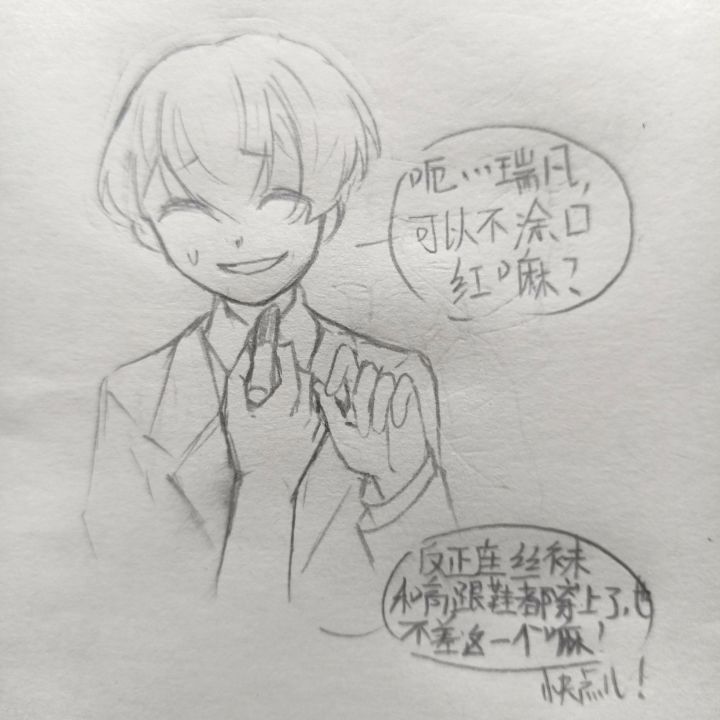 呃…瑞凡,
可以不涂口
红嘛?
反正连丝袜
和高跟鞋都穿上了,也
不差这一个嘛!
快点儿!